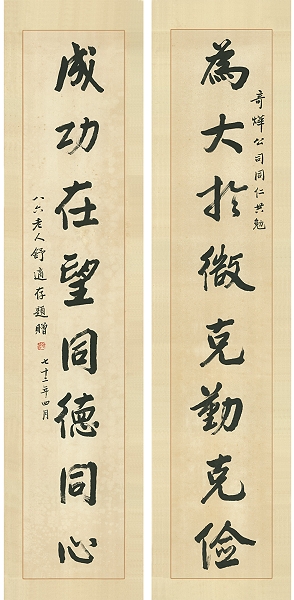 為大於微克勤克儉
奇燁公司同仁共勉
成功在望同德同心
八六老人舒適存題贈
七十二年四月